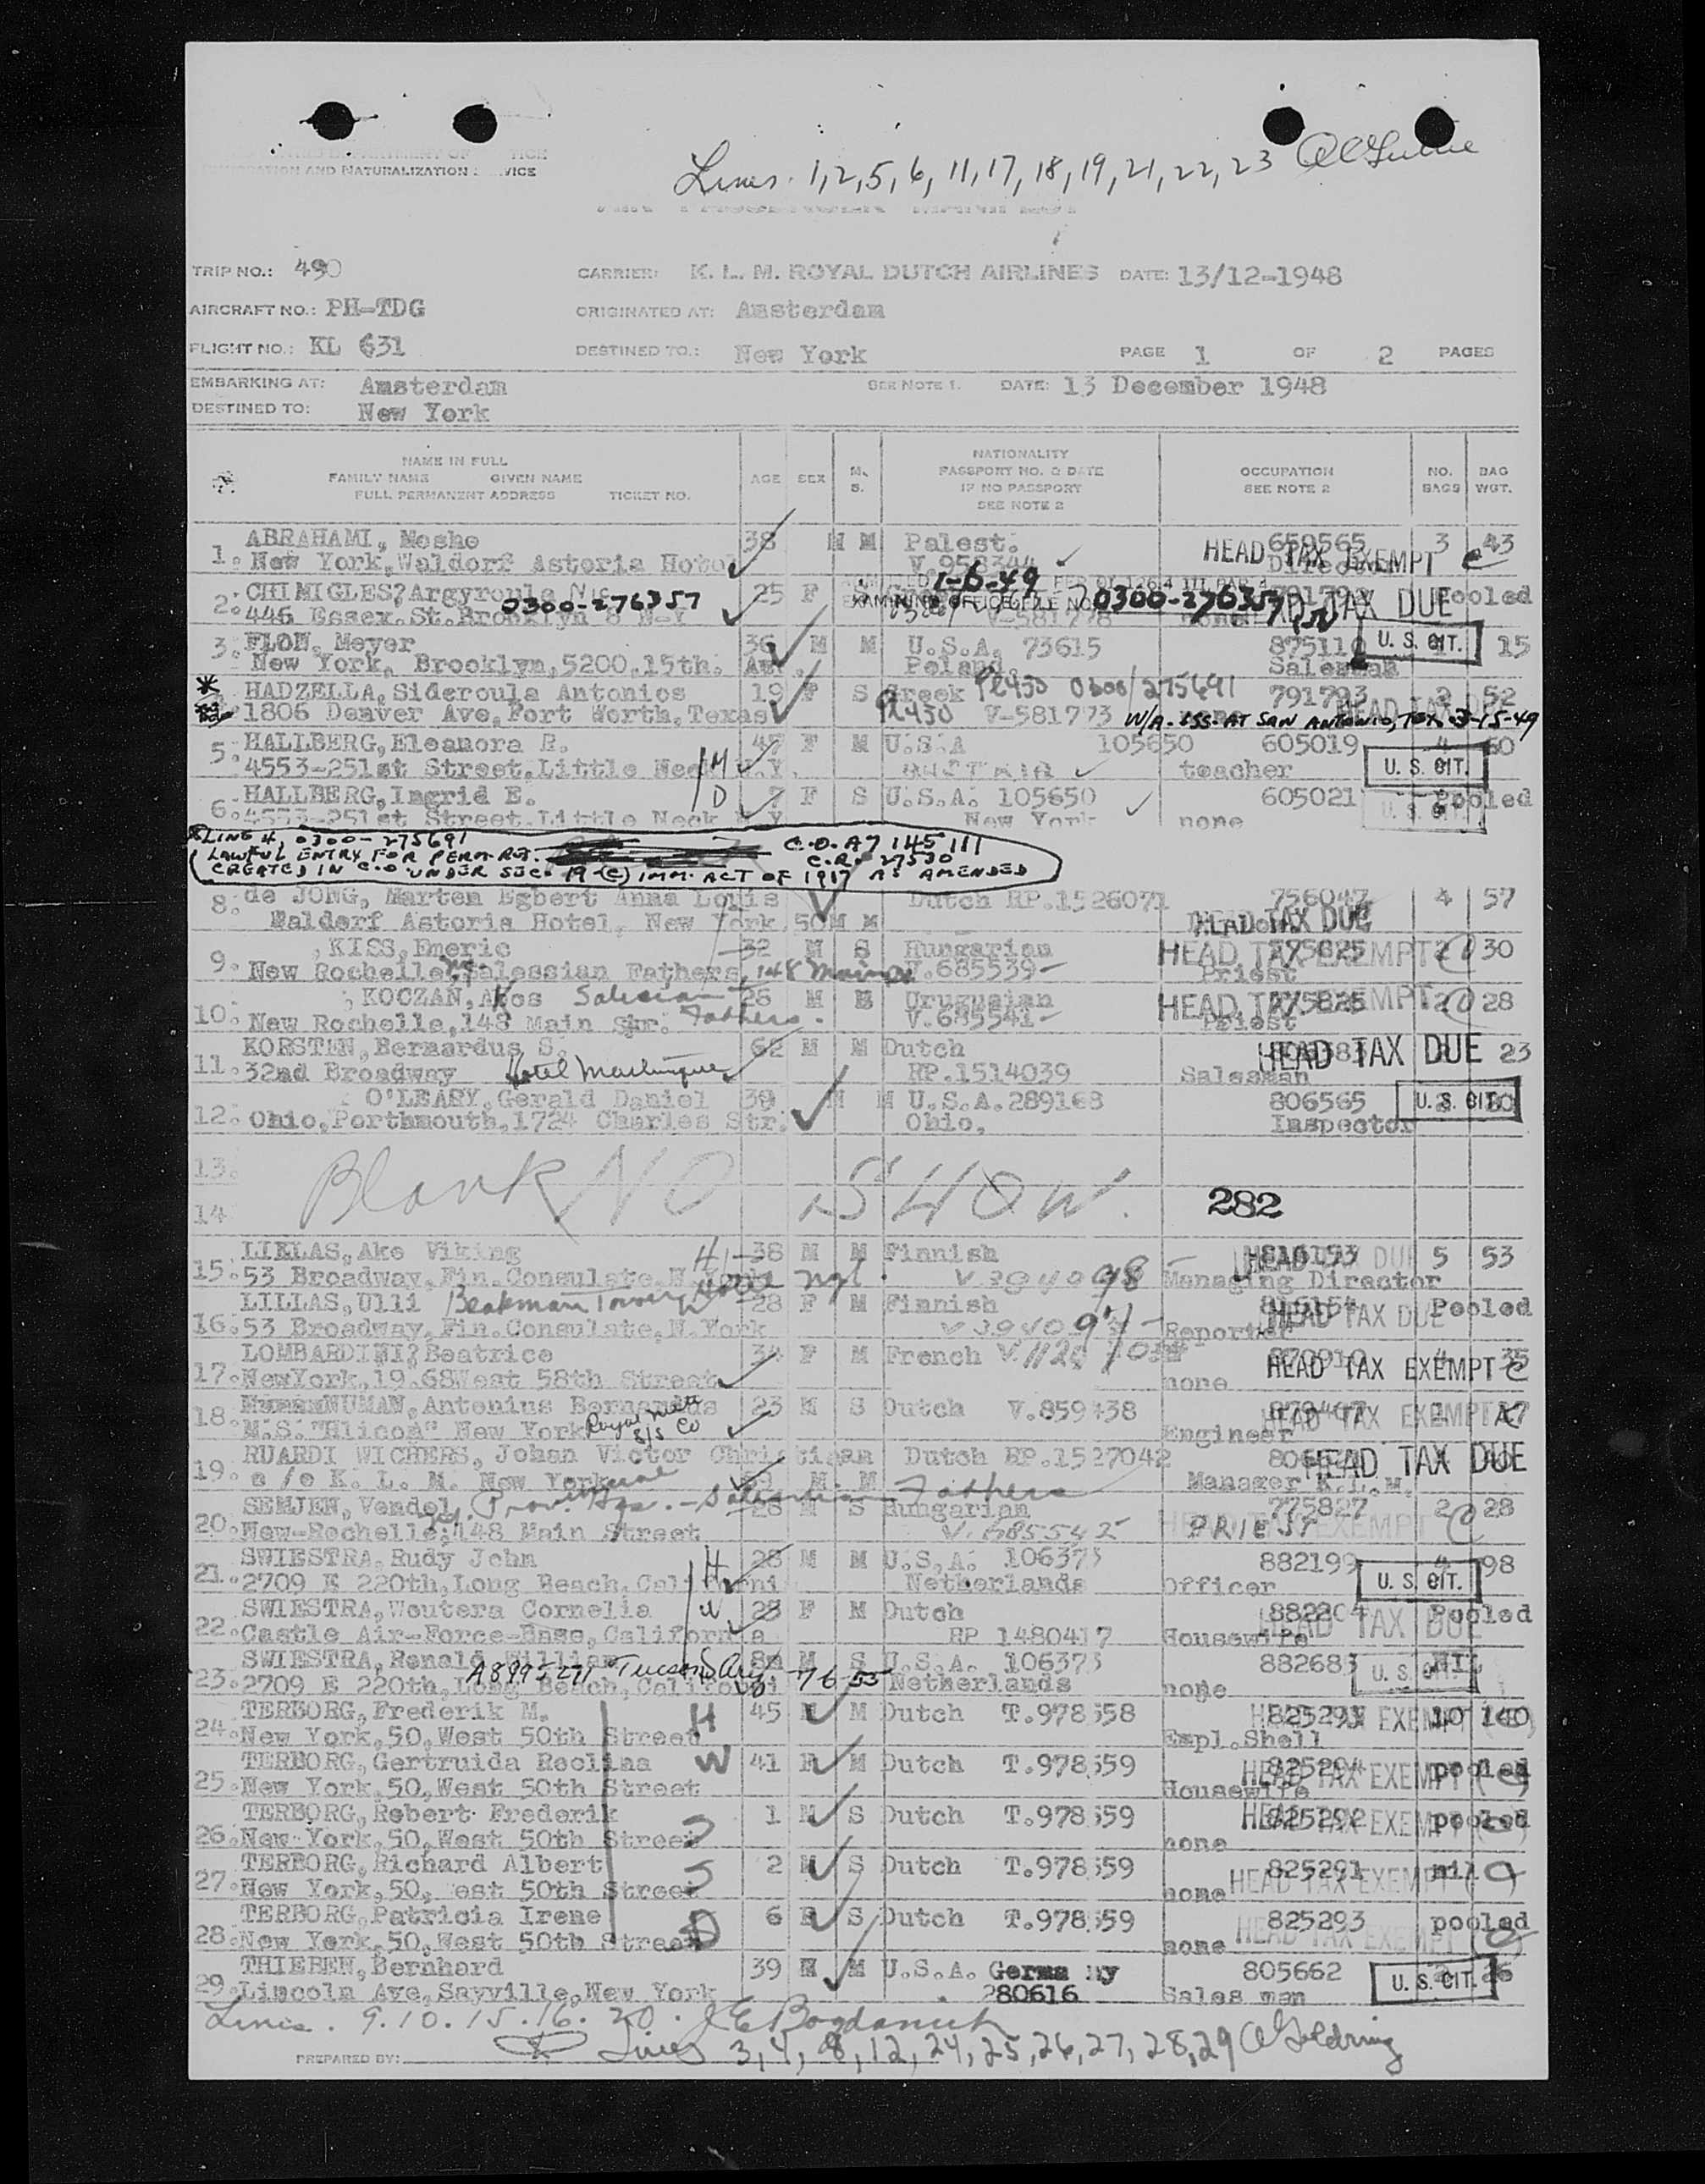 AND NATURALIZATION
Lines. 1, 2, 5, 6, 11, 17, 18, 19, 21, 22, 23
TRIP NO.: 490 CARRIER: K. L. M. ROYAL DUTCH AIRLINES DATE: 13/12-1948
AIRCRAFT NO.: PH-TDG ORIGINATED AT: Amsterdam
FLIGHT NO.: KL 631 DESTINED TO.: New York PAGE 1 OF 2 PAGES
EMBARKING AT: Amsterdam SEE NOTE 1. DATE: 13 December 1948
DESTINED TO: New York
NAME IN FULL
FAMILY NAME GIVEN NAME
FULL PERMANENT ADDRESS TICKET NO.
AGE SEX M. S.
NATIONALITY
PASSPORT NO. & DATE
IF NO PASSPORT
SEE NOTE 2
OCCUPATION
SEE NOTE 2
NO. BAGS
BAG WGT.
ABRAHAMI, Moshe 38 M M Palest. 659565 3 43
1. New York, Waldorf Astoria V.958344 HEAD TAX EXEMPT
CHIMIGLES? Argyroula 25 F 1-6-49 Pooled
2. 446 Essex. St. Brooklyn 8 N.Y 0300-276357 V-581778 0300-276357 none TAX DUE
FLON, Meyer 36 M M U.S.A. 73615 875110 U. S. CIT. 15
3. New York, Brooklyn, 5200.15th. Av. Poland. Salesman
HADZELLA, Sideroula Antonios 19 F S Greek 0300/275691 791793 2 52
1806 Denver Ave, Fort Worth, Texas V-581793 W/A. ISS. AT SAN ANTONIO, TEX. 3-15-49
HALLBERG, Eleanora R. 47 F M U.S.A 105650 605019 4 60
5. 4553-251st Street, Little Neck N.Y. AUSTRIA teacher U. S. CIT.
HALLBERG, Ingrid E. D 7 F S U.S.A. 105650 605021 Pooled
6. 4553-251st Street, Little Neck N.Y New York none
LINE 4, 0300-275691 C.O. A7 145 111
LAWFUL ENTRY FOR PERM. RES. C.R. 27530
CREATED IN C.O UNDER SEC. 19 (C) IMM. ACT OF 1917 AS AMENDED
de JONG, Marten Egbert Anna Louis Dutch RP.1526071 756047 4 57
8. Waldorf Astoria Hotel, New York 50 M M TAX DUE
KISS, Emeric 32 M S Hungarian HEAD TAX EXEMPT 775825 2 30
9. New Rochelle, Salessian Fathers, 148 Main V.685539 Priest
KOCZAN, Akos Salesian Fathers. M S Uruguaian HEAD TAX EXEMPT 2 28
10. New Rochelle, 148 Main Str. V.685541 Priest
KORSTEN, Bernardus S. 62 M M Dutch HEAD TAX DUE 23
11. 32nd Broadway Hotel Martinique RP.1514039 Salesman
O'LEARY, Gerald Daniel 39 M M U.S.A. 289168 806565 U. S. CIT.
12. Ohio, Porthmouth, 1724 Charles Str. Ohio, Inspector
13.
Blank NO SHOW.
14 282
LIELAS, Ake Viking H 38 M M Finnish 816153 5 53
15. 53 Broadway, Fin. Consulate, N. York 98 Managing Director
LILLAS, Ulli Beakman Tower Hotel 28 F M Finnish 816154 HEAD TAX DUE Pooled
16. 53 Broadway, Fin. Consulate, N. York Reporter
LOMBARDINI? Beatrice 34 F M French 35
17. NewYork, 19.68West 58th Street none HEAD TAX EXEMPT
NUMAN, Antonius Bernardus 23 M S Dutch V.859438 HEAD TAX EXEMPT
18. M.S. "Hlicon" New York Engineer
RUARDI WICHERS, Johan Victor Christiaan Dutch RP.1527042 HEAD TAX DUE
19. c/o K. L. M. New York M M Manager K.L.M.
SEMJEN, Vendel 28 M S Hungarian Fathers 775827 2 28
20. New-Rochelle, 148 Main Street V. 685542 PRIEST
SWIESTRA, Rudy John H 28 M M U.S.A. 106373 882199 4 98
21. 2709 E 220th, Long Beach, Californi Netherlands Officer U. S. CIT.
SWIESTRA, Woutera Cornelia W 28 F M Dutch 882204 Pooled
22. Castle Air-Force-Base, California RP 1480417 Housewife HEAD TAX DUE
SWIESTRA, Ronald William M S U.S.A. 106373 882683 NIL
23. 2709 E 220th, Long Beach, Californi Netherlands none U. S. CIT.
TERBORG, Frederik M. H 45 M M Dutch T.978558 825295 10 140
24. New York, 50, West 50th Street Empl. Shell
TERBORG, Gertruida Reolina W 41 F M Dutch T.978559 825294 pooled
25. New York, 50, West 50th Street Housewife HEAD TAX EXEMPT
TERBORG, Robert Frederik 1 M S Dutch T.978559 825292 pooled
26. New York, 50, West 50th Street S none HEAD TAX EXEMPT
TERBORG, Richard Albert 2 M S Dutch T.978559 825291 nil
27. New York, 50, est 50th Street S none HEAD TAX EXEMPT
TERBORG, Patricia Irene 6 F S Dutch T.978559 825293 pooled
28. New York, 50, West 50th Street D none HEAD TAX EXEMPT
THIEBEN, Bernhard 39 M M U.S.A. Germany 805662 26
29. Lincoln Ave, Sayville, New York 280616 Sales man U. S. CIT.
Lines. 9. 10. 15. 16. 20.
Lines 3, 4, 8, 12, 24, 25, 26, 27, 28, 29
PREPARED BY: